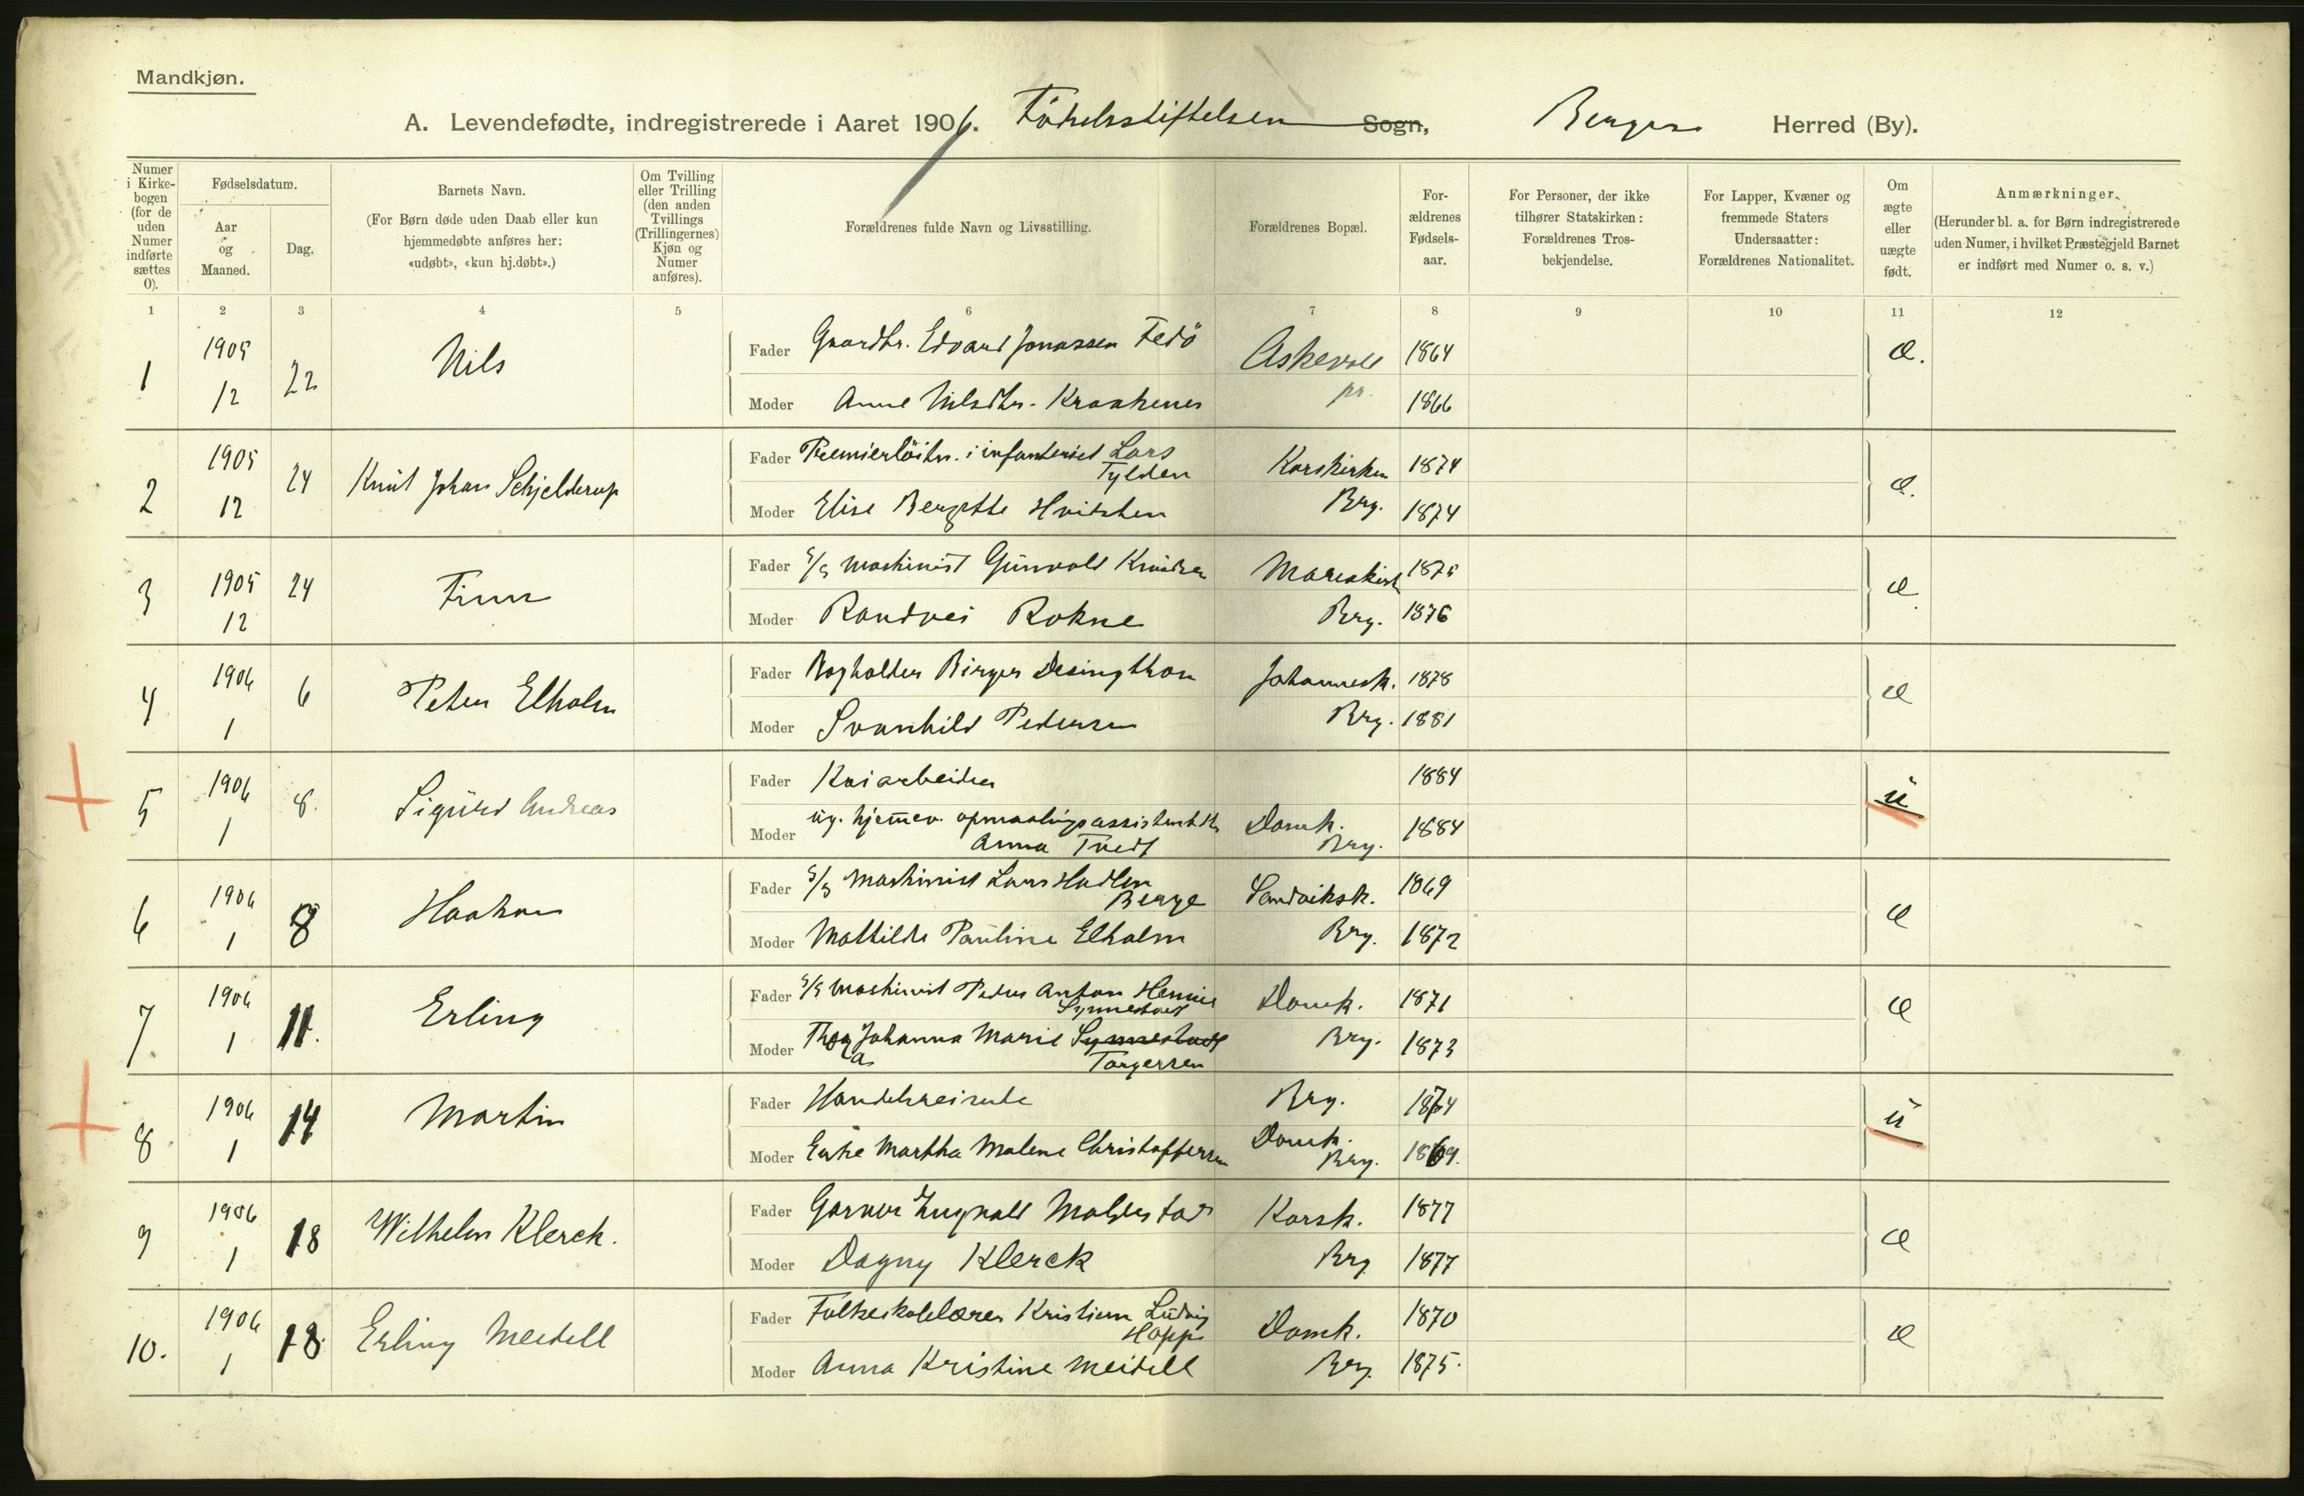 Mandkjøn.
A. Levendefødte, indregistrerede i Aaret 1906. Födselsstiftelsen Sogn, Bergen Herred (By).
Numer i Kirkebogen (for de uden Numer indførte sættes 0).
Fødselsdatum.
Aar og Maaned.
Dag.
Barnets Navn.
(For Børn døde uden Daab eller kun hjemmedøbte anføres her: «udøbt», «kun hj.døbt».)
Om Tvilling eller Trilling (den anden Tvillings (Trillingernes) Kjøn og Numer anføres).
Forældrenes fulde Navn og Livsstilling.
Forældrenes Bopæl.
Forældrenes Fødselsaar.
For Personer, der ikke tilhører Statskirken: Forældrenes Trosbekjendelse.
For Lapper, Kvæner og fremmede Staters Undersaatter: Forældrenes Nationalitet.
Om ægte eller uægte født.
Anmærkninger.
(Herunder bl. a. for Børn indregistrerede uden Numer, i hvilket Præstegjeld Barnet er indført med Numer o. s. v.)
1 2 3 4 5 6 7 8 9 10 11 12
1 1905 12 22 Nils
Fader Gaardbr. Edvard Jonassen Fedö Askevold 1864 æ.
Moder Anne Nilsdtr. Kraakenes pr. 1866
2 1905 12 24 Knut Johan Schjelderup
Fader Premierlöitn. i infanteriet Lars Tylden Korskirken 1874 æ.
Moder Elise Bergitte Hvitsten Brg. 1874
3 1905 12 24 Finn
Fader s/s maskinist Gunvald Knudsen Mariakirk 1875 æ.
Moder Randvei Rokne Brg. 1876
4 1906 1 6 Peter Elholm
Fader Bogholder Birger Desingthon Johannesk. 1878 æ
Moder Svanhild Pedersen Brg. 1881
5 1906 1 8. Sigurd Andreas
Fader Kaiarbeider 1884 u
Moder ug. hjemmev. opmaalingsassistentdtr Anna Tvedt Domk. Brg. 1884
6 1906 1 8 Haakon
Fader s/s maskinist Lars Hadlen Berge Sandviksk. 1869 æ
Moder Mathilde Pauline Elholm Brg. 1872
7. 1906 1 11. Erling
Fader s/s maskinist Peder Anton Synnestvedt Domk. 1871 æ
Moder Thea Johanna Marie Synnestvedt Torgersen Brg. 1873
8 1906 1 14 Martin
Fader Handelsreisende Brg. 1874 u
Moder Enke Martha Malene Christoffersen Domk. Brg. 1869.
9 1906 1 18 Wilhelm Klerck.
Fader Garver Ingvald Moldestad Korsk. 1877 æ
Moder Dagny Klerck Brg 1877
10. 1906 1 18. Erling Meidell
Fader Folkeskolelærer Kristian Ludvig Hopp Domk. 1870 æ
Moder Anna Kristine Meidell Brg. 1875.